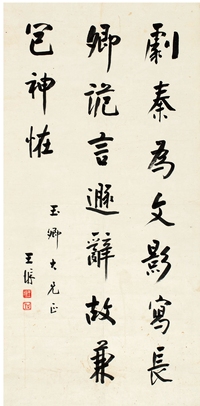 劇秦為文影寫長
卿詭言遯辭故兼
包神恠
玉卿大兄正
王